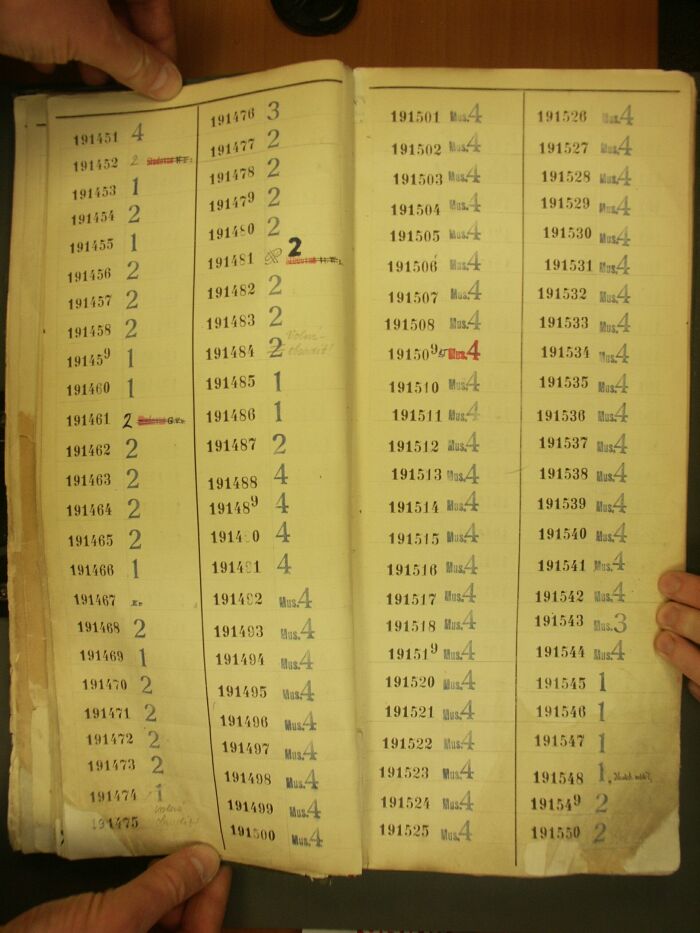 191451 4
191452 2
191453 1
191454 2
191455 1
191456 2
191457 2
191458 2
191459 1
191460 1
191461 2
191462 2
191463 2
191464 2
191465 2
191466 1
191467
191468 2
191469 1
191470 2
191471 2
191472 2
191473 2
191474 1
191475
191476 3
191477 2
191478 2
191479 2
191480 2
191481 2
191482 2
191483 2
191484 2
191485 1
191486 1
191487 2
191488 4
191489 4
191490 4
191491 4
191492 Mus.4
191493 Mus.4
191494 Mus.4
191495 Mus.4
191496 Mus.4
191497 Mus.4
191498 Mus.4
191499 Mus.4
191500 Mus.4
191501 Mus.4
191502 Mus.4
191503 Mus.4
191504 Mus.4
191505 Mus.4
191506 Mus.4
191507 Mus.4
191508 Mus.4
191509 Mus.4
191510 Mus.4
191511 Mus.4
191512 Mus.4
191513 Mus.4
191514 Mus.4
191515 Mus.4
191516 Mus.4
191517 Mus.4
191518 Mus.4
191519 Mus.4
191520 Mus.4
191521 Mus.4
191522 Mus.4
191523 Mus.4
191524 Mus.4
191525 Mus.4
191526 Mus.4
191527 Mus.4
191528 Mus.4
191529 Mus.4
191530 Mus.4
191531 Mus.4
191532 Mus.4
191533 Mus.4
191534 Mus.4
191535 Mus.4
191536 Mus.4
191537 Mus.4
191538 Mus.4
191539 Mus.4
191540 Mus.4
191541 Mus.4
191542 Mus.4
191543 Mus.3
191544 Mus.4
191545 1
191546 1
191547 1
191548 1.
191549 2
191550 2